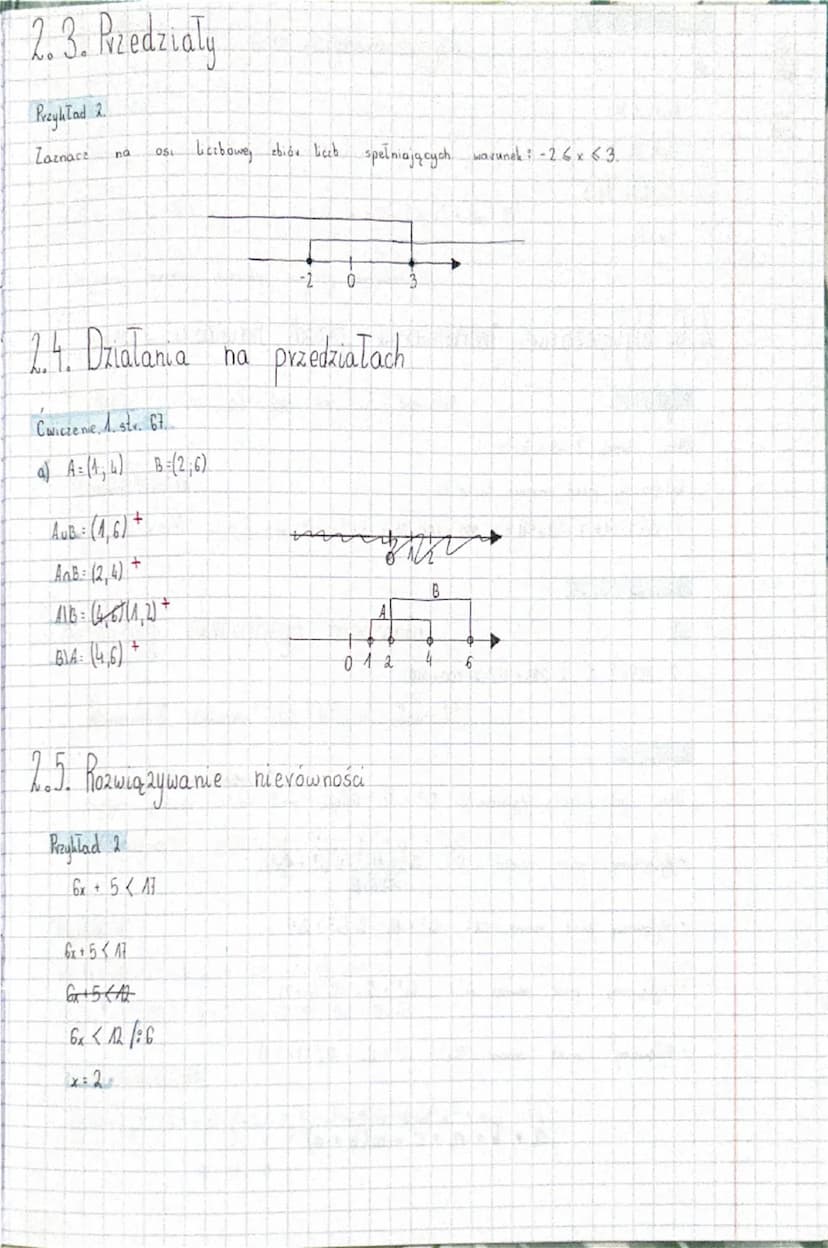 2.3. Przedziały
Przykład 2.
Zaznacz na osi liczbowej zbiór liczb spełniających warunek: -2 ≤ x ≤ 3.
-2 0 3
2.4. Działania na przedziałach
Ćwiczenie. 1. str. 67.
a) A=(1,4) B=(2;6)
A∪B=(1,6) +
A∩B=(2,4) +
A\B=(4,6)(1,2) +
B\A=(4,6) +
0 1 2
B
A
0 1 2 4 6
2.5. Rozwiązywanie nierówności
Przykład 2
6x + 5 < 17
6x + 5 < 17
6x + 5 < 12
6x < 12 /:6
x = 2